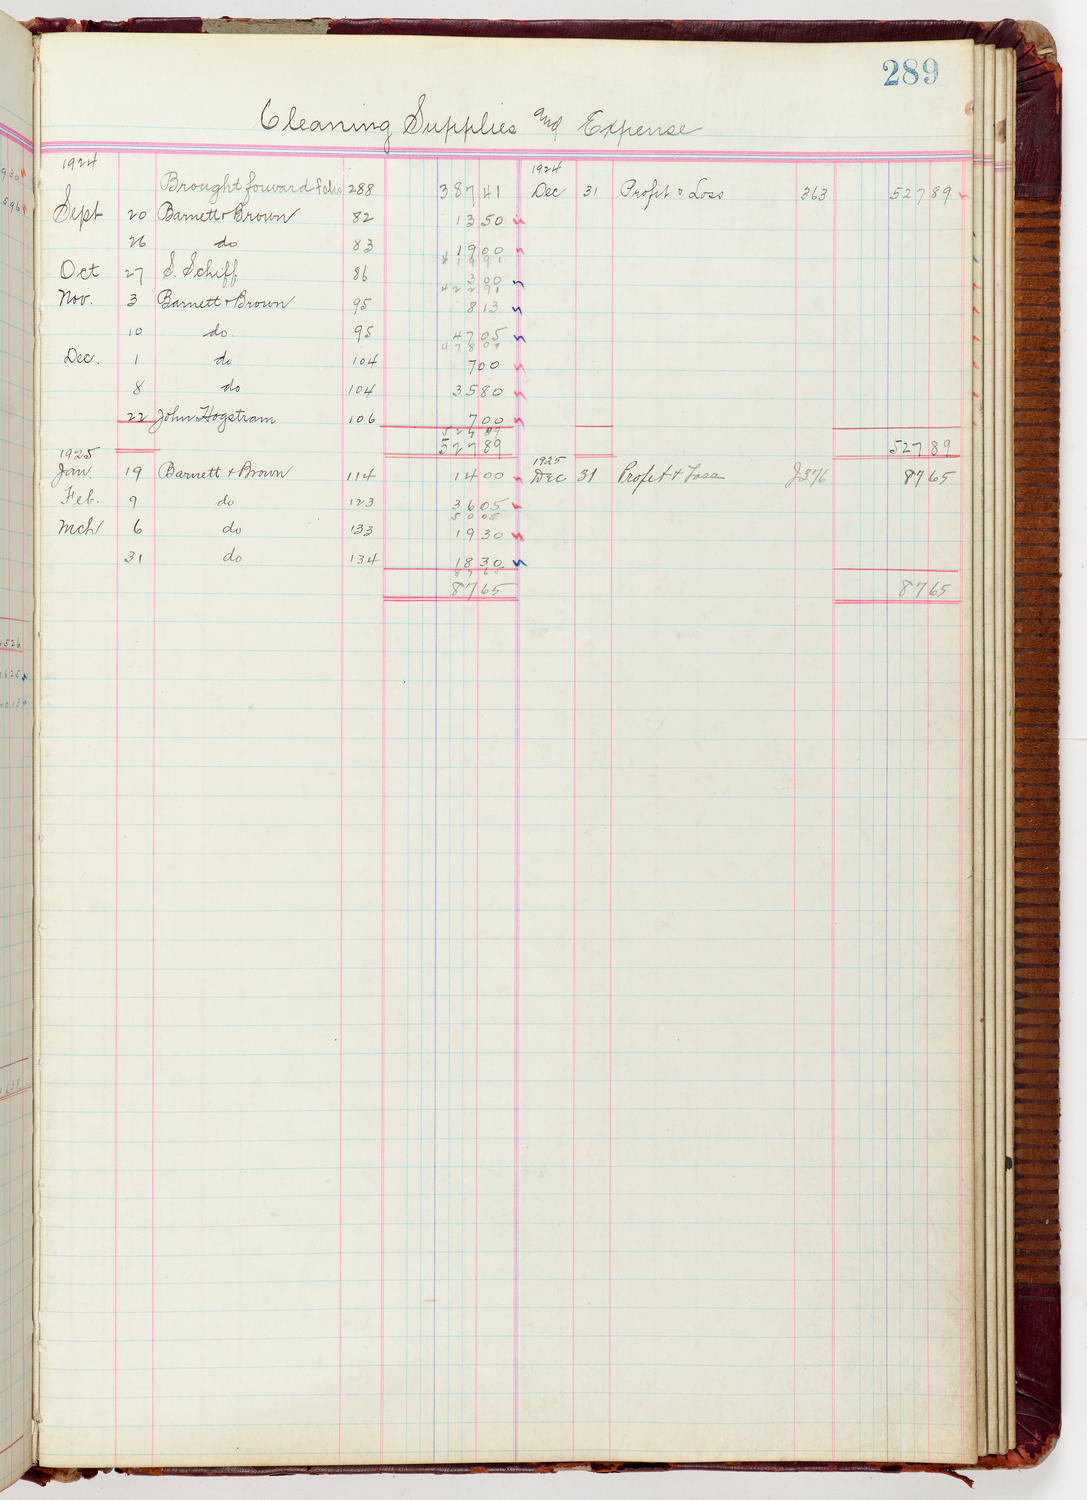 289
Cleaning Supplies and Expense
1924
Brought forward folio 288 387 41
Sept 20 Barnett & Brown 82 13 50
26 do 83 19 00
419 91
Oct 27 S. Schiff 86 3 00
422 91
Nov. 3 Barnett & Brown 95 8 13
10 do. 95 47 05
478 09
Dec. 1 do 104 7 00
8 do 104 35 80
22 John Hogstram 106 7 00
527 89
527 89
1925
Jan. 19 Barnett & Brown 114 14 00
Feb. 9 do 123 36 05
50 05
Mch 6 do 133 19 30
31 do 134 18 30
87 65
87 65
1924
Dec 31 Profit & Loss 363 527 89
527 89
1925
Dec 31 Profit & Loss J376 87 65
87 65